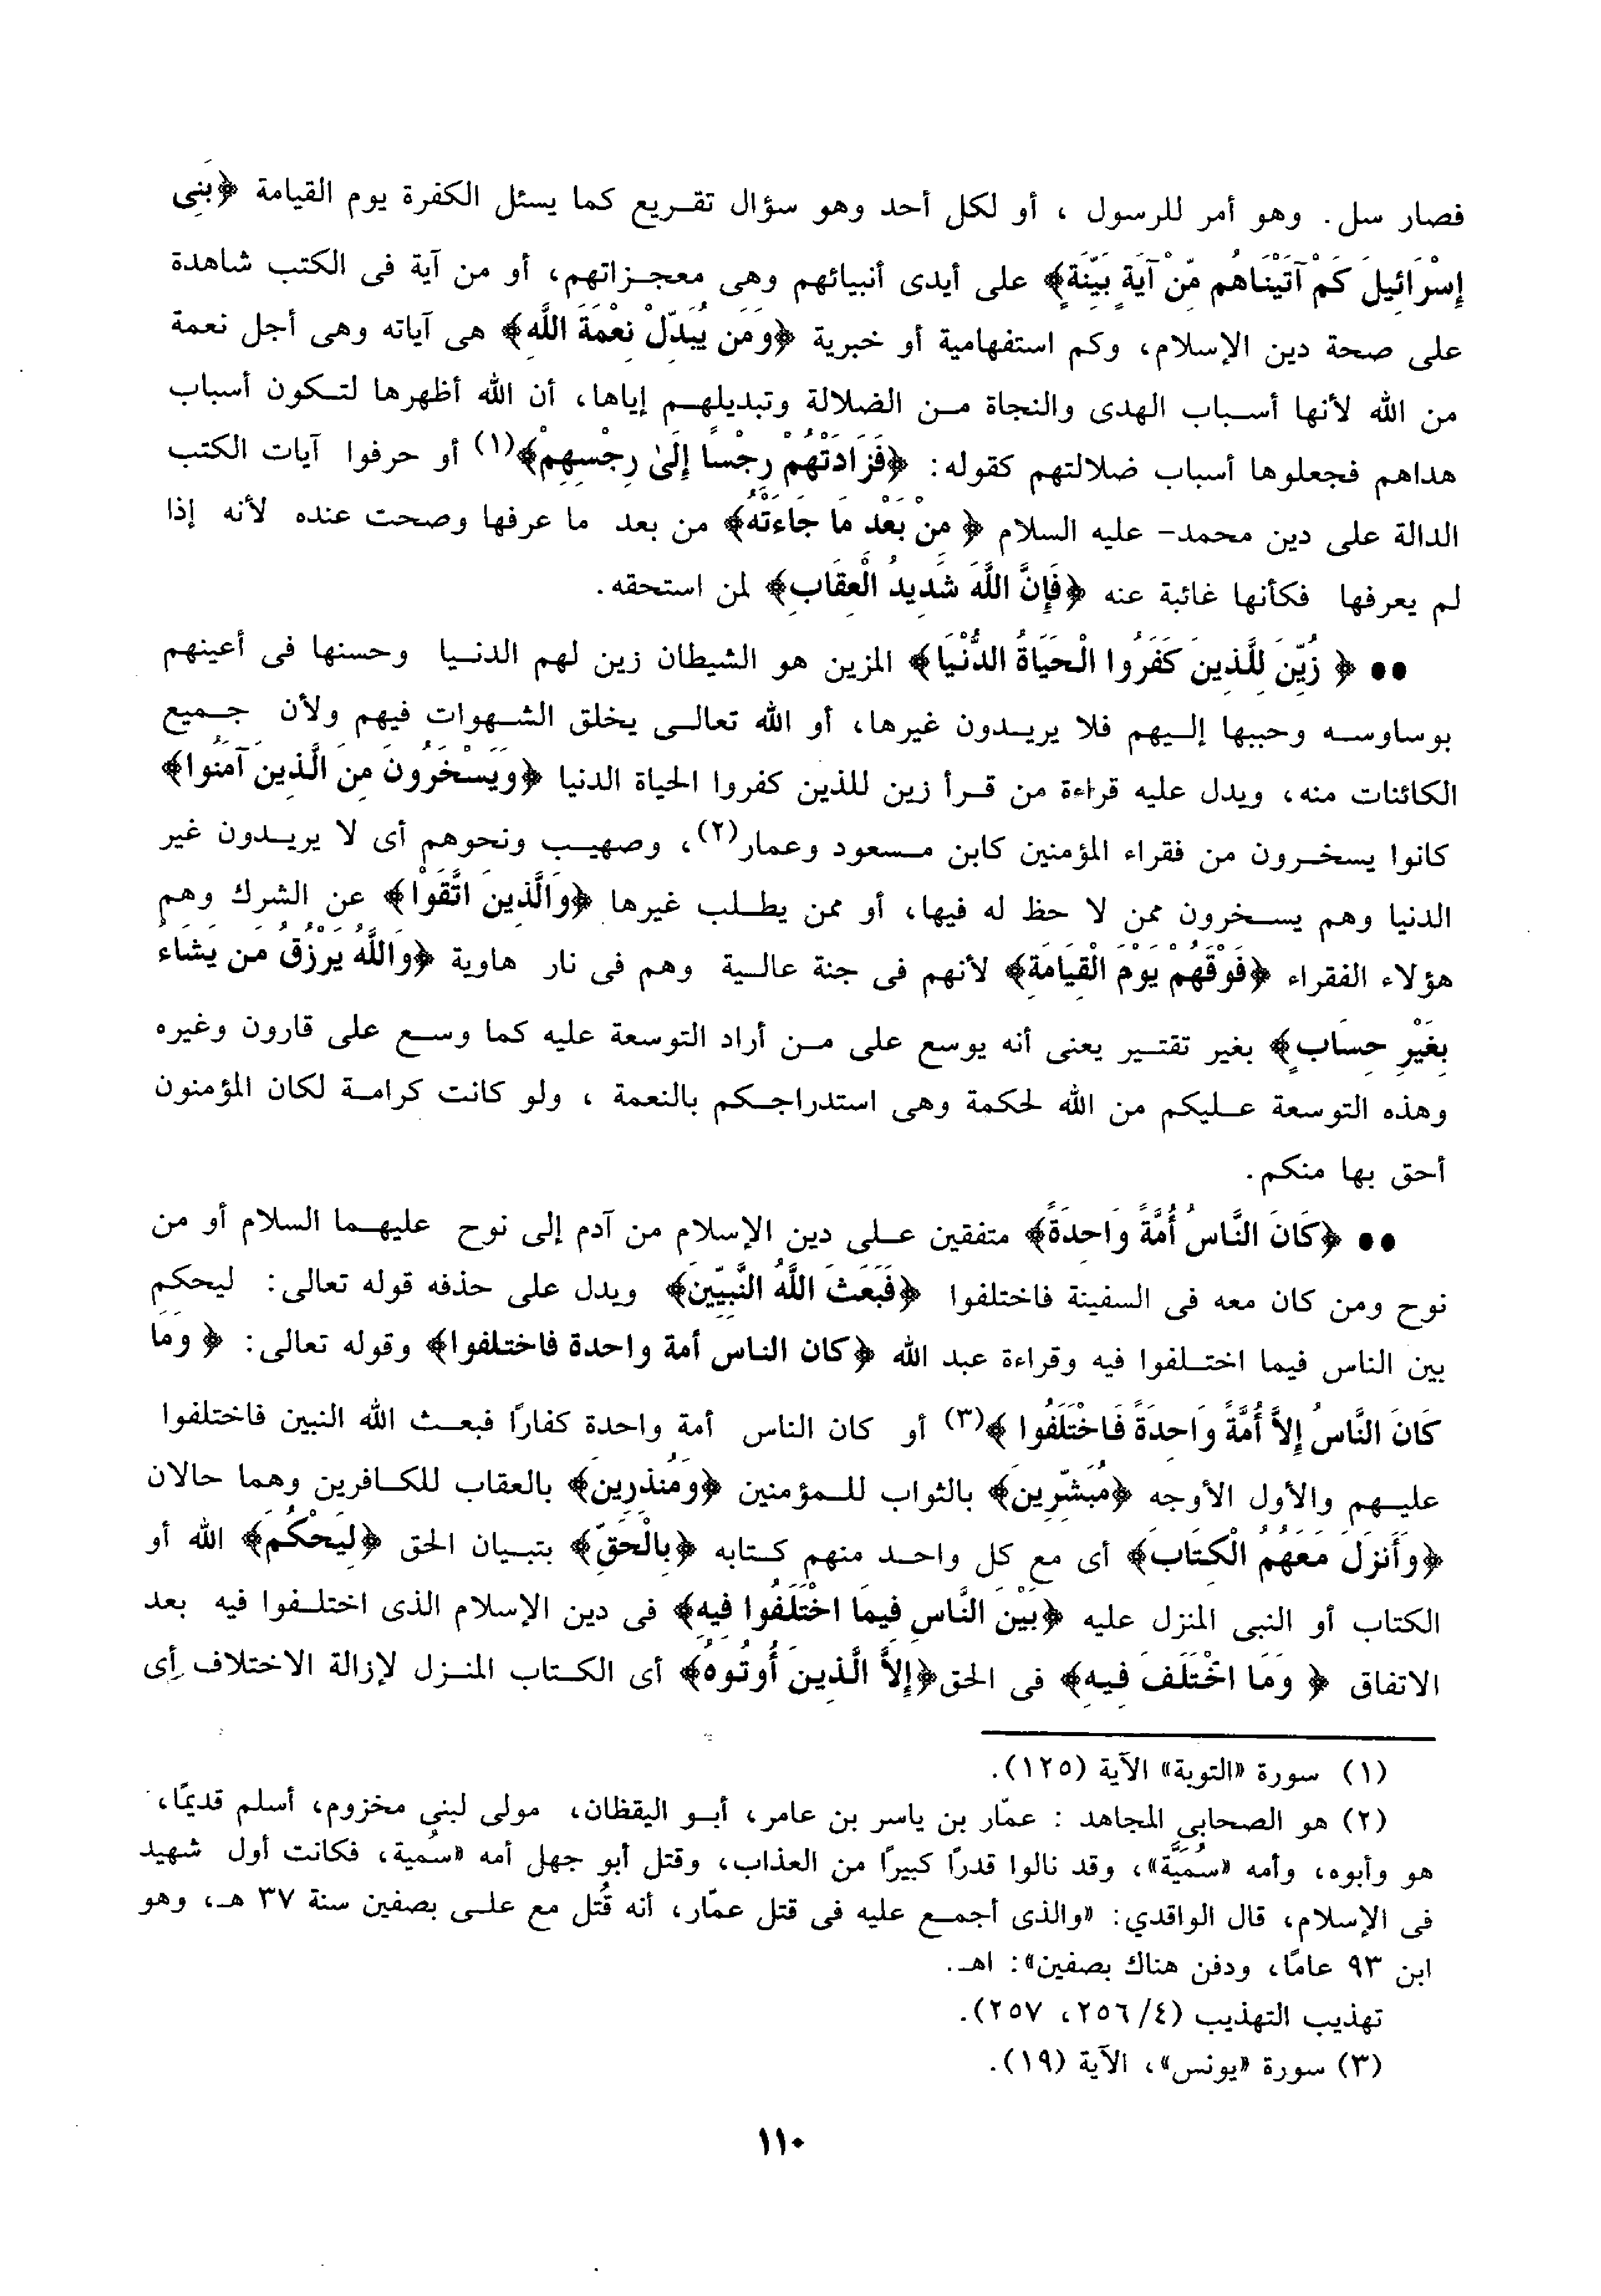 فصار سل. وهو أمر للرسول ، أو لكل أحد وهو سؤال تقريع كما يسئل الكفرة يوم القيامة ﴿بَنِى
إِسْرَائِيلَ كَمْ آتَيْنَاهُم مِّنْ آيَةٍ بَيِّنَةٍ﴾ على أيدى أنبيائهم وهى معجزاتهم، أو من آية فى الكتب شاهدة
على صحة دين الإسلام، وكم استفهامية أو خبرية ﴿وَمَن يُبَدِّلْ نِعْمَةَ اللَّهِ﴾ هى آياته وهى أجل نعمة
من الله لأنها أسباب الهدى والنجاة من الضلالة وتبديلهم إياها، أن الله أظهرها لتكون أسباب
هداهم فجعلوها أسباب ضلالتهم كقوله: ﴿فَزَادَتْهُمْ رِجْسًا إِلَىٰ رِجْسِهِمْ﴾(١) أو حرفوا آيات الكتب
الدالة على دين محمد- عليه السلام ﴿ مِنْ بَعْدِ مَا جَاءَتْهُ﴾ من بعد ما عرفها وصحت عنده لأنه إذا
لم يعرفها فكأنها غائبة عنه ﴿فَإِنَّ اللَّهَ شَدِيدُ الْعِقَابِ﴾ لمن استحقه.
●● ﴿ زُيِّنَ لِلَّذِينَ كَفَرُوا الْحَيَاةُ الدُّنْيَا﴾ المزين هو الشيطان زين لهم الدنيا وحسنها فى أعينهم
بوساوسه وحببها إليهم فلا يريدون غيرها، أو الله تعالى يخلق الشهوات فيهم ولأن جميع
الكائنات منه، ويدل عليه قراءة من قرأ زين للذين كفروا الحياة الدنيا ﴿وَيَسْخَرُونَ مِنَ الَّذِينَ آمَنُوا﴾
كانوا يسخرون من فقراء المؤمنين كابن مسعود وعمار(٢)، وصهيب ونحوهم أى لا يريدون غير
الدنيا وهم يسخرون ممن لا حظ له فيها، أو ممن يطلب غيرها ﴿وَالَّذِينَ اتَّقَوْا﴾ عن الشرك وهم
هؤلاء الفقراء ﴿فَوْقَهُمْ يَوْمَ الْقِيَامَةِ﴾ لأنهم فى جنة عالية وهم فى نار هاوية ﴿وَاللَّهُ يَرْزُقُ مَن يَشَاءُ
بِغَيْرِ حِسَابٍ﴾ بغير تقتير يعنى أنه يوسع على من أراد التوسعة عليه كما وسع على قارون وغيره
وهذه التوسعة عليكم من الله لحكمة وهى استدراجكم بالنعمة ، ولو كانت كرامة لكان المؤمنون
أحق بها منكم.
●● ﴿كَانَ النَّاسُ أُمَّةً وَاحِدَةً﴾ متفقين على دين الإسلام من آدم إلى نوح عليهما السلام أو من
نوح ومن كان معه فى السفينة فاختلفوا ﴿فَبَعَثَ اللَّهُ النَّبِيِّينَ﴾ ويدل على حذفه قوله تعالى: ليحكم
بين الناس فيما اختلفوا فيه وقراءة عبد الله ﴿كان الناس أمة واحدة فاختلفوا﴾ وقوله تعالى: ﴿ وَمَا
كَانَ النَّاسُ إِلاَّ أُمَّةً وَاحِدَةً فَاخْتَلَفُوا ﴾(٣) أو كان الناس أمة واحدة كفارًا فبعث الله النبين فاختلفوا
عليهم والأول الأوجه ﴿مُبَشِّرِينَ﴾ بالثواب للمؤمنين ﴿وَمُنذِرِينَ﴾ بالعقاب للكافرين وهما حالان
﴿وَأَنزَلَ مَعَهُمُ الْكِتَابَ﴾ أى مع كل واحد منهم كتابه ﴿بِالْحَقِّ﴾ بتبيان الحق ﴿لِيَحْكُمَ﴾ الله أو
الكتاب أو النبى المنزل عليه ﴿بَيْنَ النَّاسِ فِيمَا اخْتَلَفُوا فِيهِ﴾ فى دين الإسلام الذى اختلفوا فيه بعد
الاتفاق ﴿ وَمَا اخْتَلَفَ فِيهِ﴾ فى الحق ﴿إِلاَّ الَّذِينَ أُوتُوهُ﴾ أى الكتاب المنزل لإزالة الاختلاف أى
(١) سورة «التوبة» الآية (١٢٥).
(٢) هو الصحابي المجاهد : عمّار بن ياسر بن عامر، أبو اليقظان، مولى لبنى مخزوم، أسلم قديمًا،
هو وأبوه، وأمه «سُمَيَّة»، وقد نالوا قدرًا كبيرًا من العذاب، وقتل أبو جهل أمه «سُمية، فكانت أول شهيد
فى الإسلام، قال الواقدي: «والذى أجمع عليه فى قتل عمّار، أنه قُتل مع على بصفين سنة ٣٧ هـ، وهو
ابن ٩٣ عامًا، ودفن هناك بصفين»: اهـ.
تهذيب التهذيب (٤/ ٢٥٦، ٢٥٧).
(٣) سورة «يونس»، الآية (١٩).
١١٠